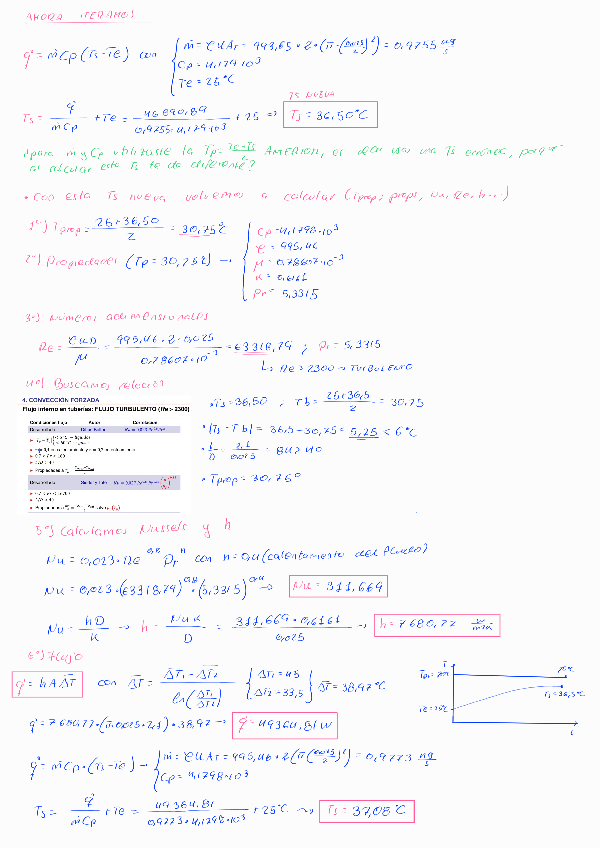 AHORA ITERAMOS
q° = ṁ Cp (Ts - Te) con { ṁ = ρ u Ar = 993,65 · 2 · (π · (0,025/2)²) = 0,9755 kg/s
Cp = 4,179·10³
Te = 25°C
TS NUEVA
Ts = q̇/ṁCp + Te = 46890,89/0,9755·4,179·10³ + 25 => Ts = 36,50°C
¿para m y Cp utilizaste la Tp = Te+Ts/2 ANTERIOR, es decir con una Ts errónea, porque
al calcular esta Ts te da diferente?
• Con esta Ts nueva volvemos a calcular (Tprop, props, Nu, Re, h...)
1º) Tprop = 25+36,50/2 = 30,75°C
2º) Propiedades (Tp = 30,75°C) → { Cp = 4,1798·10³
ρ = 995,46
μ = 0,78607·10⁻³
K = 0,6161
Pr = 5,3315
3º) Números adimensionales
Re = ρuD/μ = 995,46 · 2 · 0,025/0,78607·10⁻³ = 63318,79 ; Pr = 5,3315
↳ Re > 2300 → TURBULENTO
4º) Buscamos relación
4. CONVECCIÓN FORZADA
Flujo interno en tuberías: FLUJO TURBULENTO (Re > 2300)
Condiciones flujo Autor Correlación
Desarrollado
Desarrollado
• Ts = 36,50 ; Tb = 25+36,5/2 = 30,75
• |Ts - Tb| = 36,5 - 30,75 = 5,25 < 6°C
• L/D = 2,1/0,025 = 84 > 10
• Tprop = 30,75°
5º) Calculamos Nusselt y h
Nu = 0,023 · Re^0,8 Pr^n con n = 0,4 (calentamiento del fluido)
Nu = 0,023 · (63318,79)^0,8 · (5,3315)^0,4 → Nu = 311,669
Nu = hD/K → h = Nu K/D = 311,669 · 0,6161/0,025 → h = 7680,77 W/m²K
6º) Flujo
q° = h A ΔT con ΔT = ΔT1 - ΔT2/ln(ΔT1/ΔT2) { ΔT1 = 45
ΔT2 = 33,5 } ΔT = 38,97°C
q° = 7680,77 · (π · 0,025 · 2,1) · 38,97 → q° = 49364,81 W
q° = ṁ Cp · (Ts - Te) → { ṁ = ρ u Ar = 995,46 · 2 (π (0,025/2)²) = 0,9773 kg/s
Cp = 4,1798·10³
Ts = q̇/ṁCp + Te = 49364,81/0,9773 · 4,1798·10³ + 25°C → Ts = 37,08°C